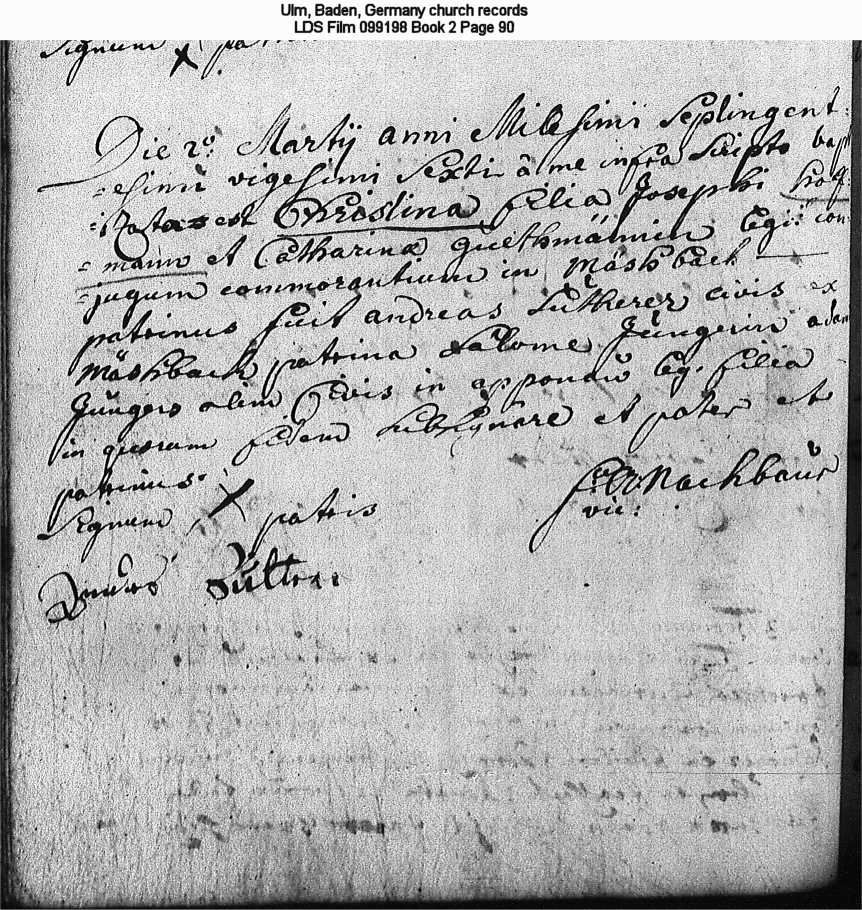 Ulm, Baden, Germany church records
LDS Film 099198 Book 2 Page 90
Signum X
Die 2º Martÿ anni Milesimi Septingent:
=esimi vigesimi Sexti â me infra Scripto bapt
izata est Christina filia Josephi Hoff=
=mann et Catharina guethmännin legi: con=
=jugum commorantium in Mäshbach
patrinus fuit andreas Lutherer civis ex
Mäshbach patrina Salome Jüngerin adam
Jüngers olim civis in appenau leg. filia
in quorum fidem subsignare et pater et
patrinus.
Signum X patris
Nachbaur
vic: